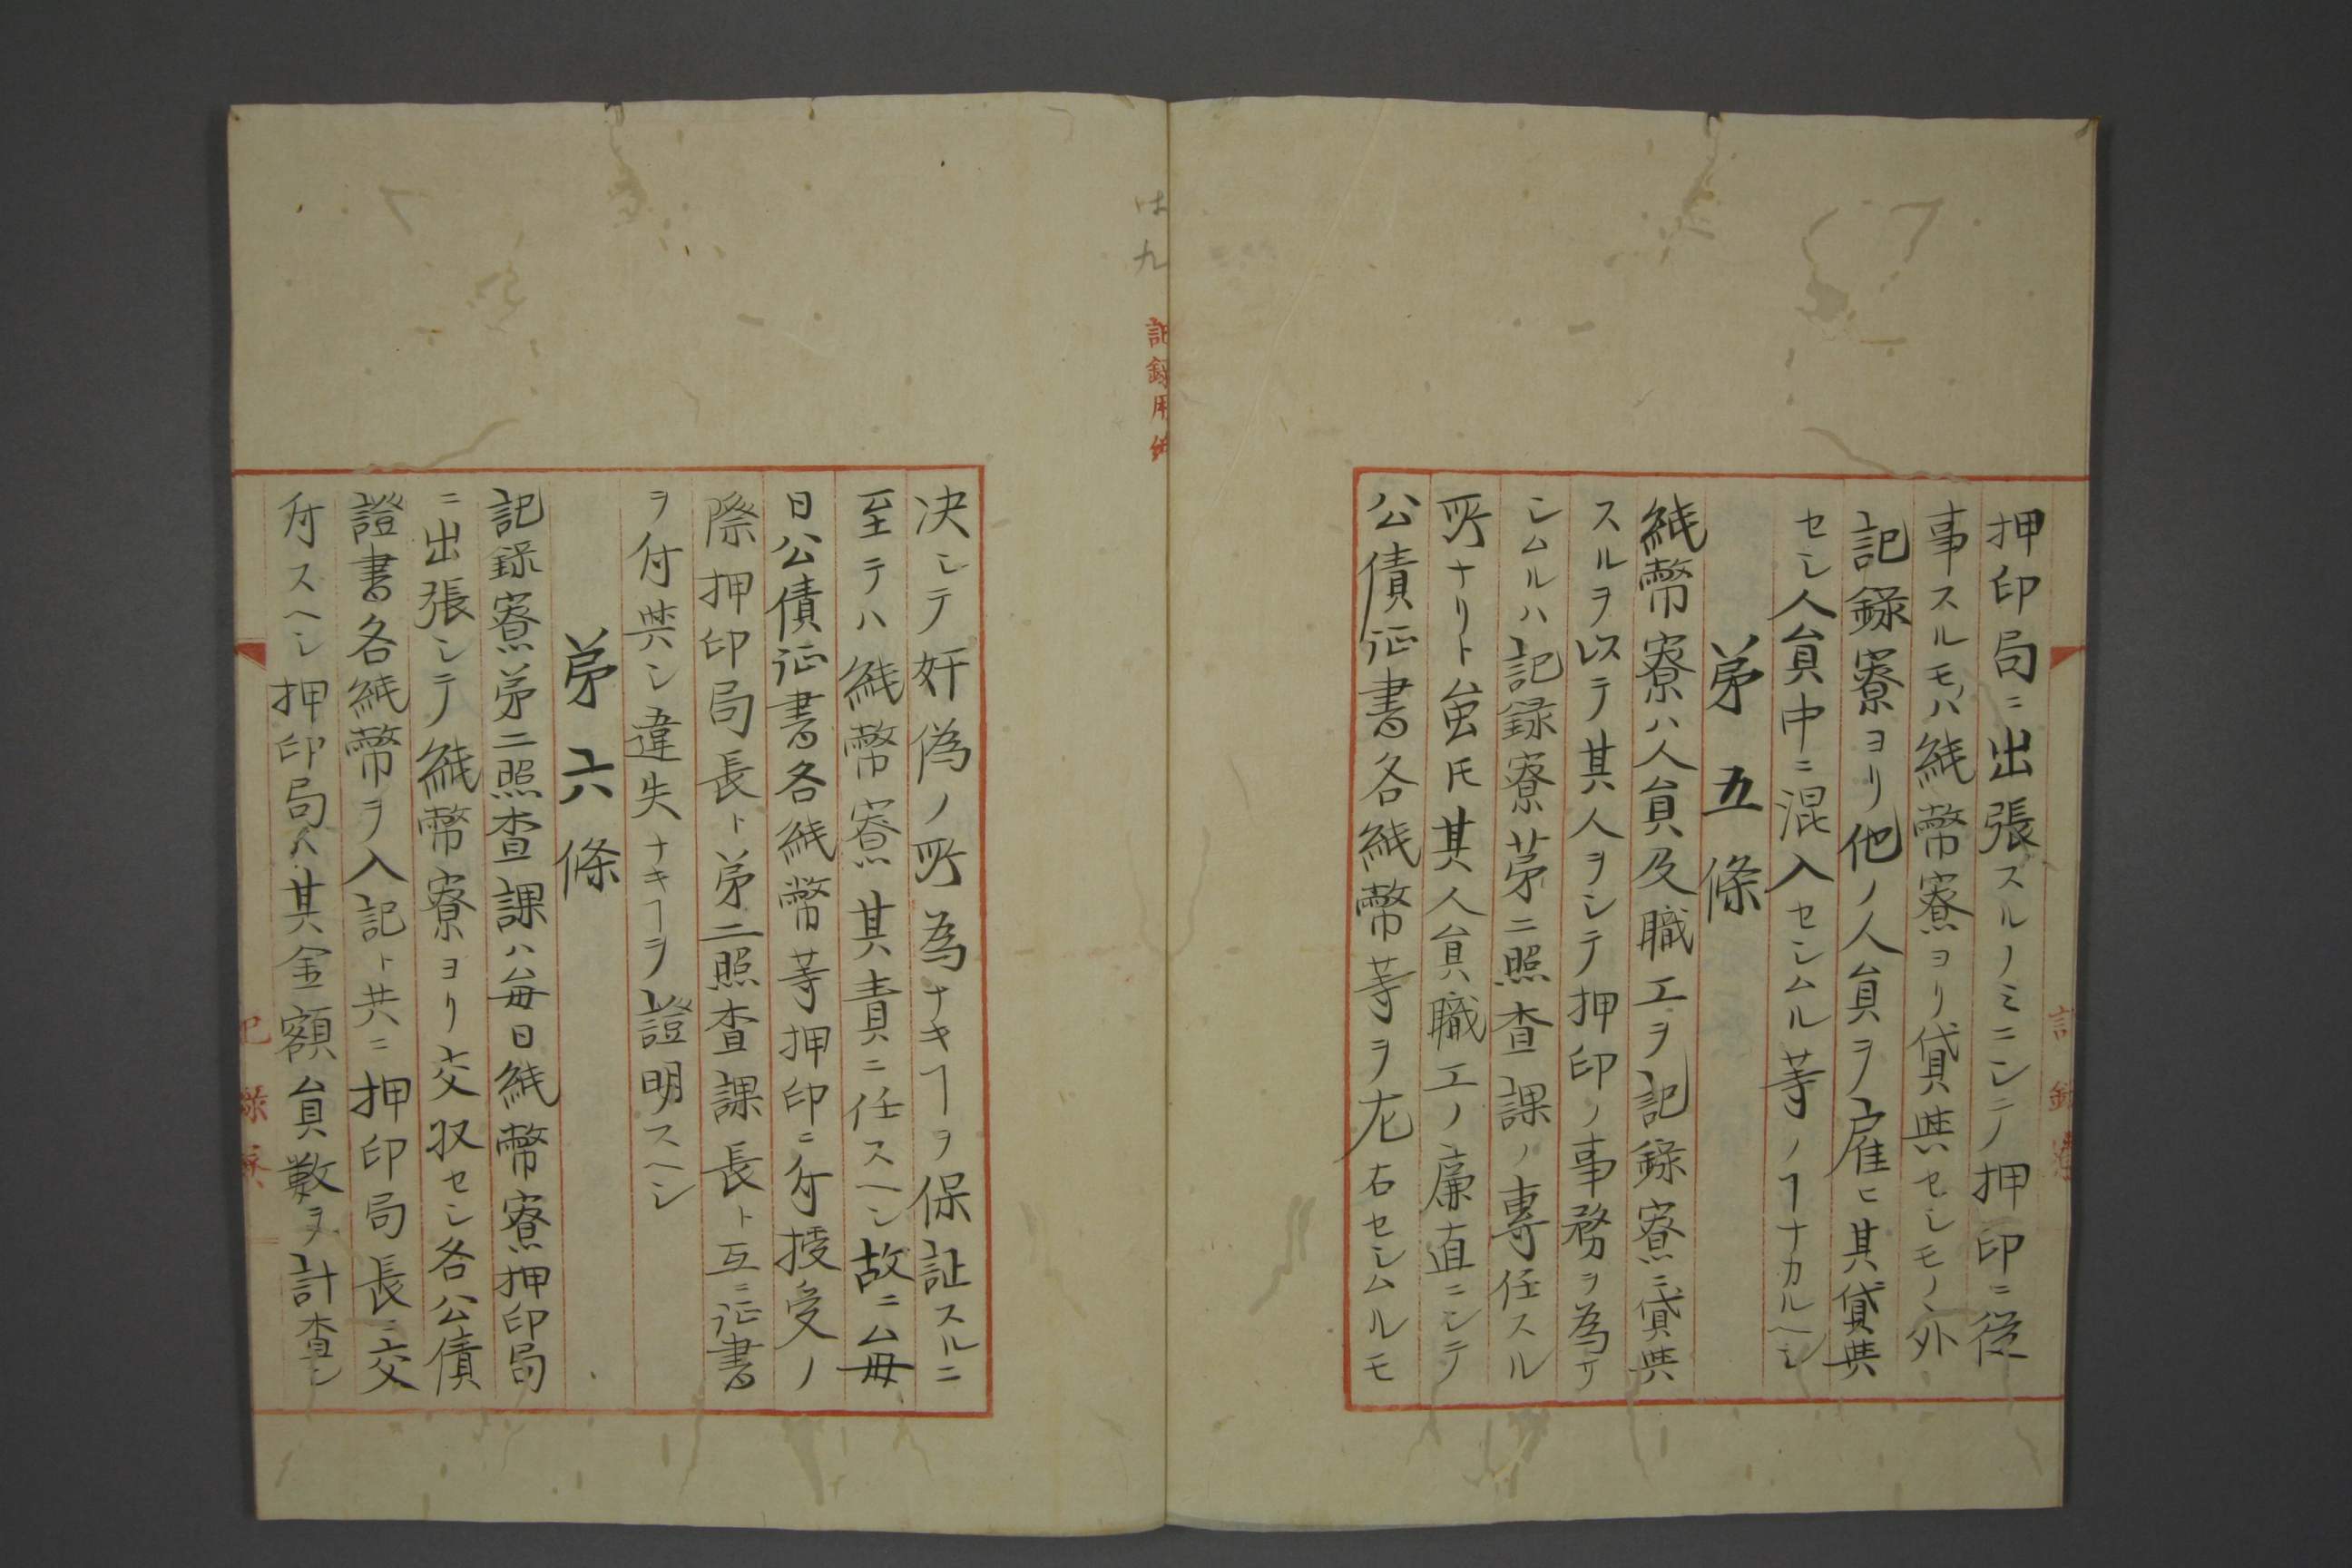 押印局ニ出張スルノミニシテ押印ニ従
事スルモノハ紙幣寮ヨリ貸與セシモノヽ外
記録寮ヨリ他ノ人員ヲ雇ヒ其貸與
セシ人員中ニ混入セシムル等ノヿナカルヘシ
第五條
紙幣寮ハ人員及職工ヲ記録寮ニ貸與
スルヲ以テ其人ヲシテ押印ノ事務ヲ為サ
シムルハ記録寮第二照査課ノ専任スル
所ナリト雖𪜈其人員職工ノ廉直ニシテ
公債证書各紙幣等ヲ左右セシムルモ
は九
記録用紙
决シテ奸偽ノ所為ナキヿヲ保証スルニ
至テハ紙幣寮其責ニ任スヘシ故ニ毎
日公債证書各紙幣等押印ニ付授受ノ
際押印局長ト第二照査課長ト互ニ证書
ヲ付與シ違失ナキヿヲ證明スヘシ
第六條
記録寮第二照査課ハ毎日紙幣寮押印局
ニ出張シテ紙幣寮ヨリ交収セシ各公債
證書各紙幣ヲ入記ト共ニ押印局長ニ交
付スヘシ押印局ハ其金額員数ヲ計査シ